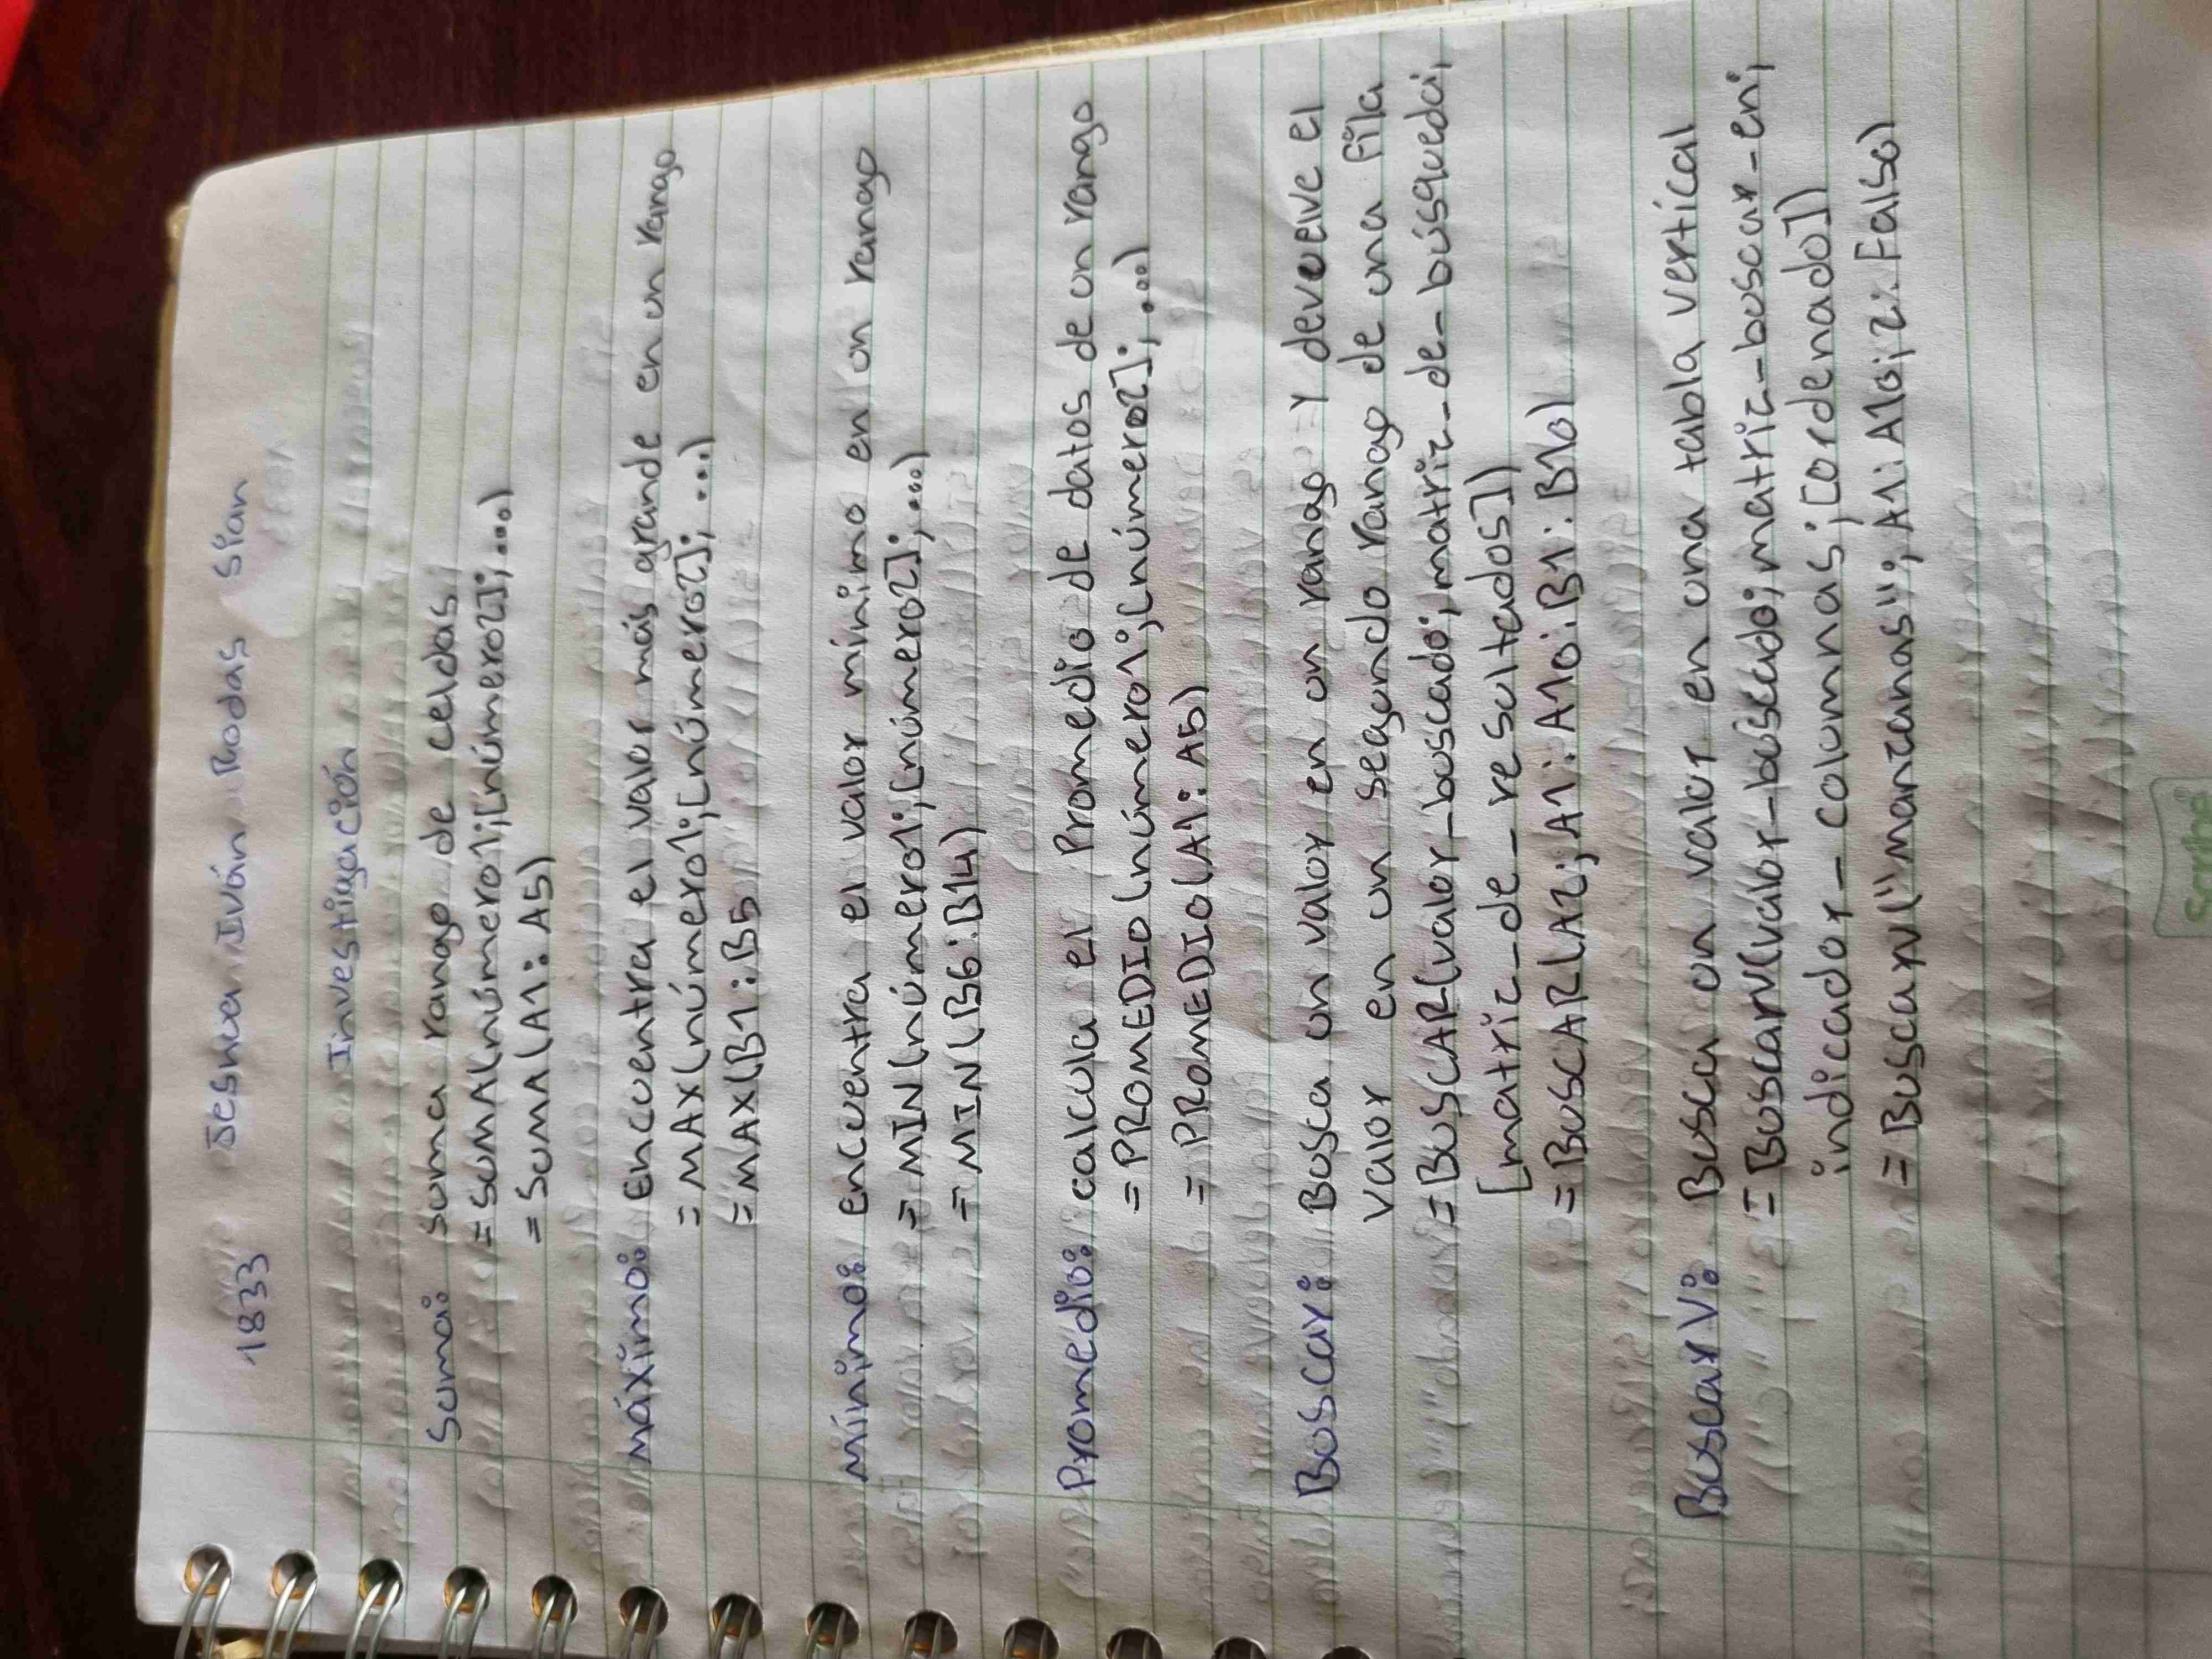 1833 Jeshua Iván Rodas Sian
Investigación
Suma: Suma rango de celdas.
=SUMA(número1;[número2];...)
=SUMA(A1:A5)
Máximo: Encuentra el valor más grande en un rango
=MAX(número1;[número2];...)
=MAX(B1:B5
Mínimo: encuentra el valor mínimo en un rango
=MIN(número1;[número2];...)
=MIN(B6:B14)
Promedio: calcula el Promedio de datos de un rango
=PROMEDIO(número1;[número2];...)
=PROMEDIO(A1:A5)
Buscar: Busca un valor en un rango y devuelve el
valor en un segundo rango de una fila
=BUSCAR(valor_buscado;matriz_de_búsqueda;
[matriz_de_resultados])
=BUSCAR(A2;A1:A10:B1:B10)
BuscarV: Busca un valor en una tabla vertical
=BuscarV(valor_buscado;matriz_buscar_en;
indicador_columnas;[ordenado])
=BuscarV("manzanas";A1:A10;2:Falso)